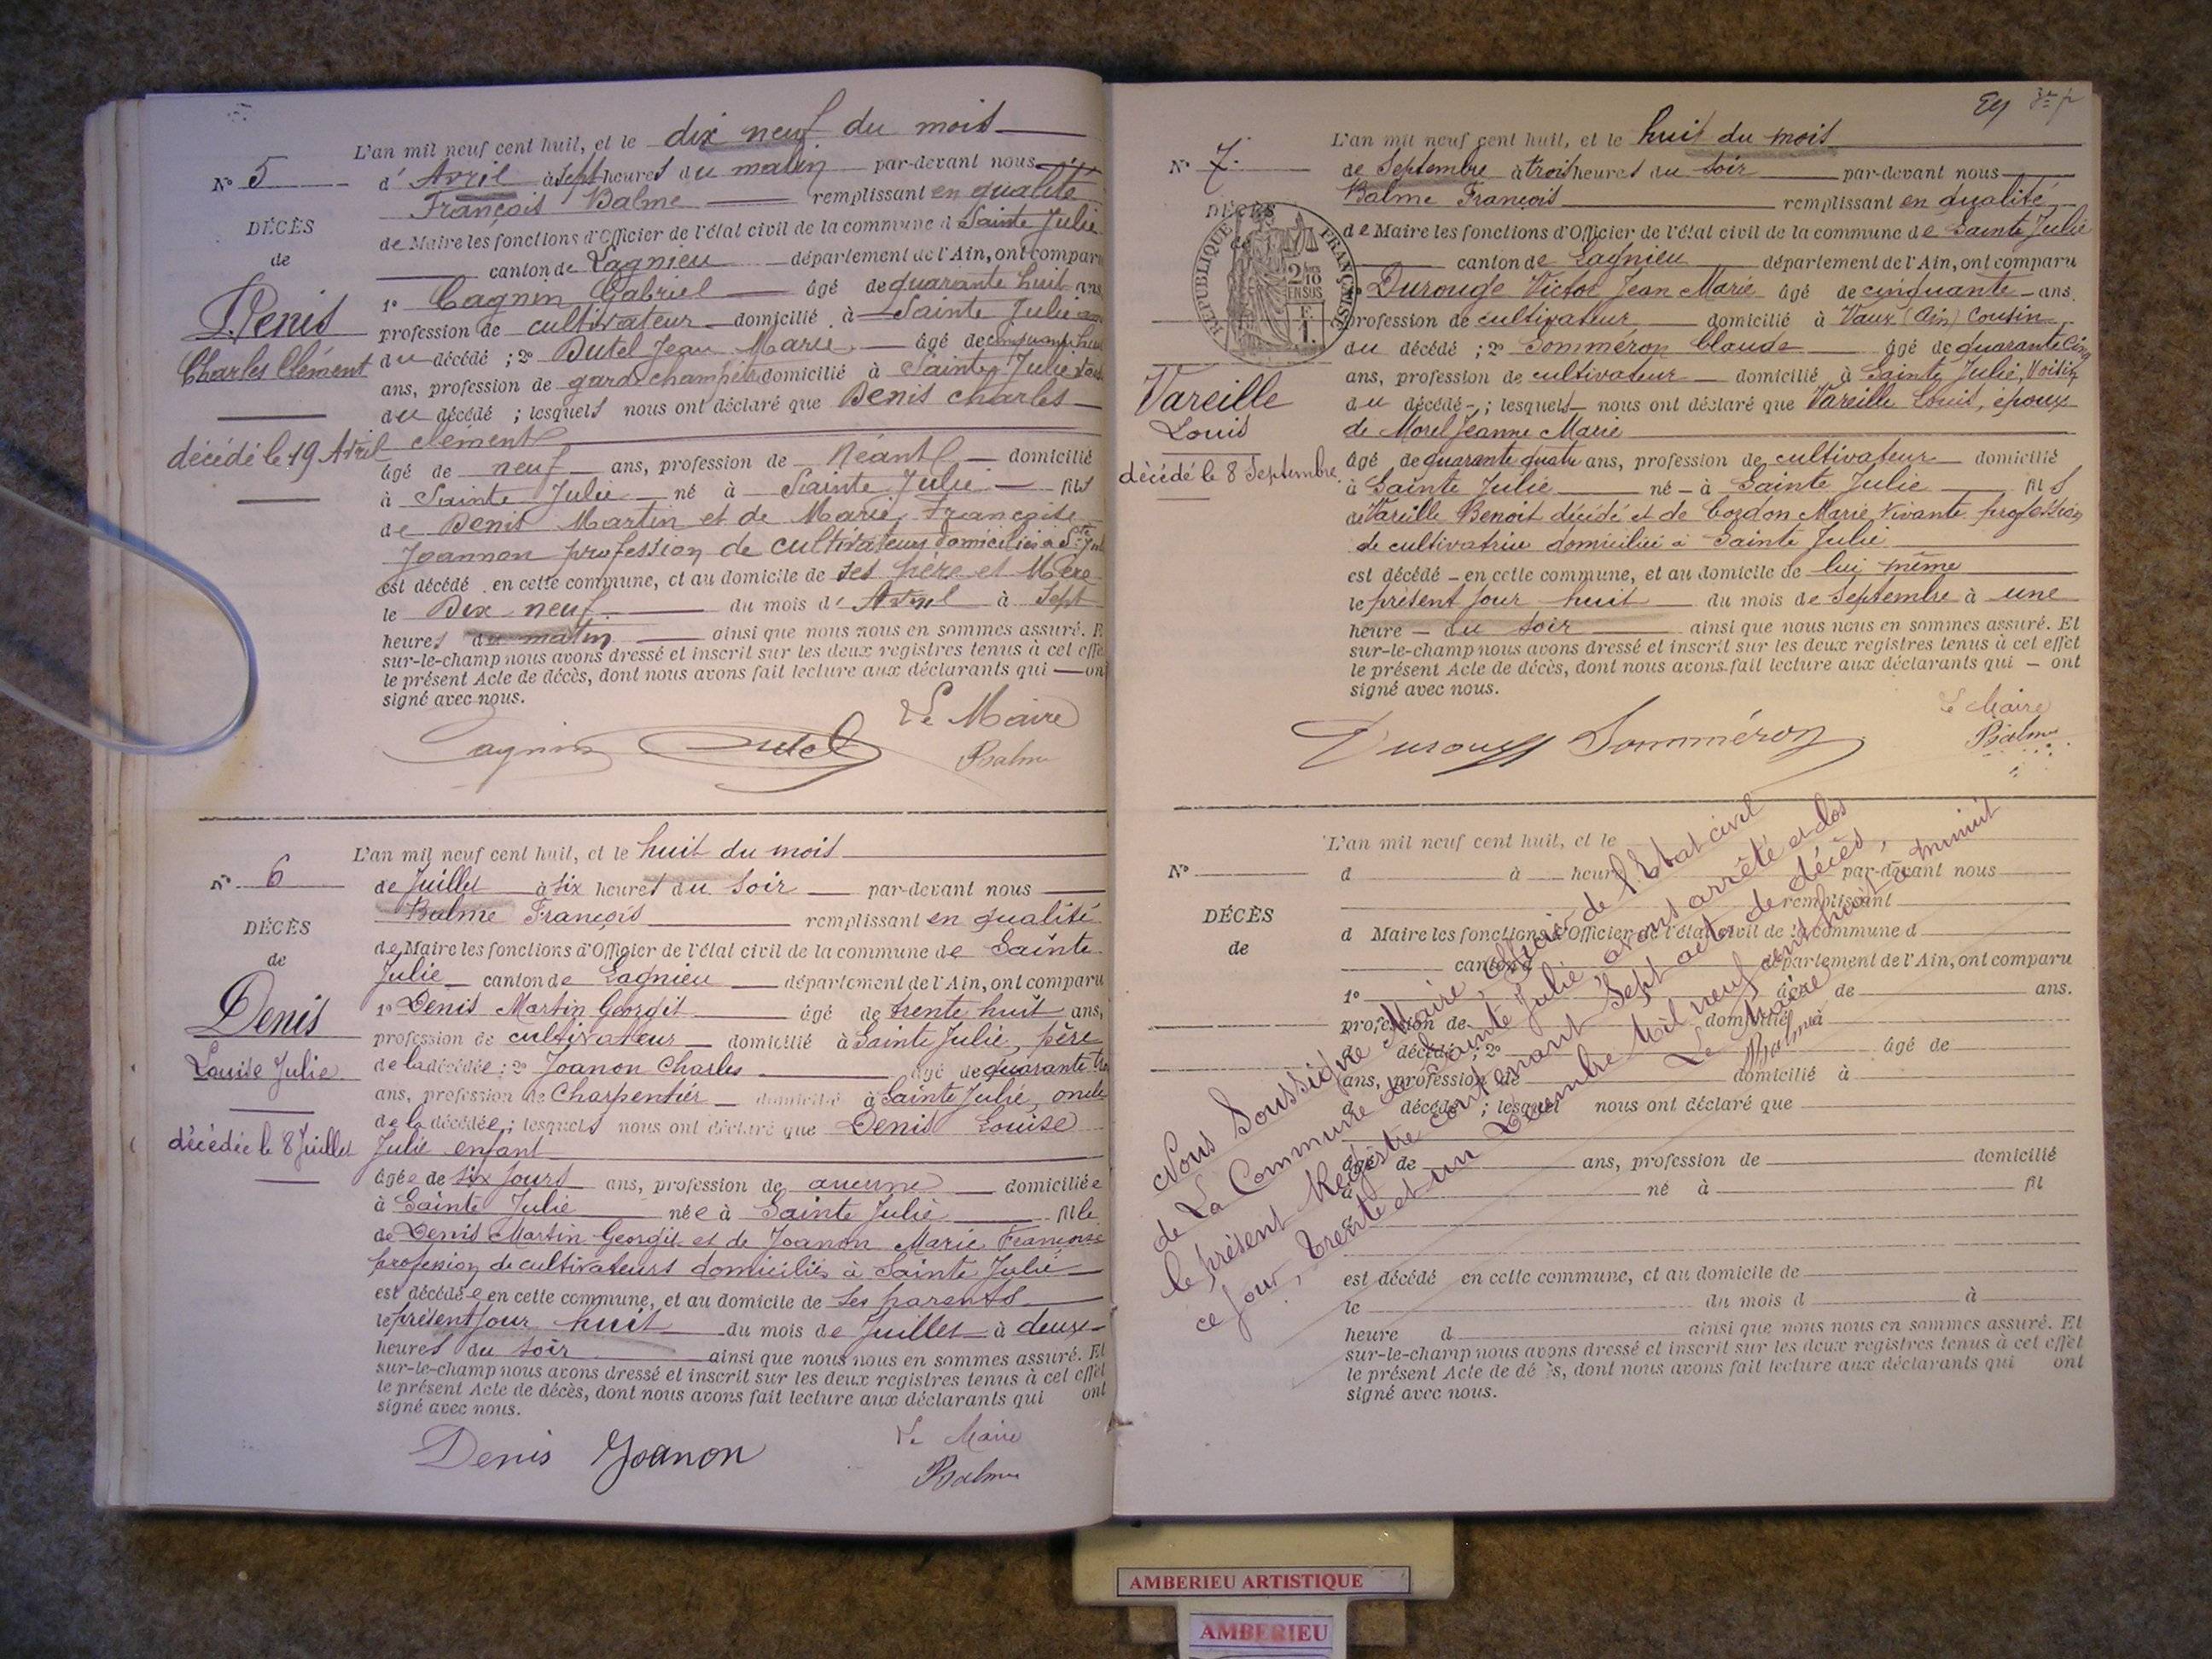 L'an mil neuf cent huit, et le dix neuf du mois
N° 5 d' Avril à sept heures du matin par-devant nous
François Balme remplissant en qualité
DÉCÈS
de Maire les fonctions d'Officier de l'état civil de la commune d Sainte Julie
de
canton de Lagnieu département de l'Ain, ont comparu
1° Cagnin Gabriel âgé de quarante huit ans
Denis
profession de cultivateur domicilié à Sainte Julie
Charles Clément
du décédé ; 2° Dutel Jean Marie âgé de
ans, profession de garde champêtre domicilié à Sainte Julie
du décédé ; lesquels nous ont déclaré que Denis Charles
décédé le 19 Avril
clément
âgé de neuf ans, profession de Néant domicilié
à Sainte Julie né à Sainte Julie fils
de Denis Martin et de Marie Françoise
Joannon profession de cultivateurs domiciliés à Ste
est décédé en cette commune, et au domicile de ses père et Mère
le Dix neuf du mois d' Avril à Sept
heures du matin ainsi que nous nous en sommes assuré. E
sur-le-champ nous avons dressé et inscrit sur les deux registres tenus à cet effe
le présent Acte de décès, dont nous avons fait lecture aux déclarants qui ont
signé avec nous.
Cagnin Dutel Le Maire
Balme
L'an mil neuf cent huit, et le huit du mois
N° 6 de Juillet à six heures du soir par-devant nous
Balme François remplissant en qualité
DÉCÈS
de Maire les fonctions d'Officier de l'état civil de la commune de Sainte
de
Julie canton de Lagnieu département de l'Ain, ont comparu
1° Denis Martin Georgit âgé de trente huit ans,
Denis
profession de cultivateur domicilié à Sainte Julie, père
Louise Julie
de la décédée ; 2° Joanon Charles âgé de quarante
ans, profession de Charpentier domicilié à Sainte Julie, oncle
de la décédée ; lesquels nous ont déclaré que Denis Louise
décédée le 8 Juillet
Julie enfant
âgée de six jours ans, profession de aucune domiciliée
à Sainte Julie née à Sainte Julie fille
de Denis Martin Georgit et de Joanon Marie Françoise
profession de cultivateurs domiciliés à Sainte Julie
est décédée en cette commune, et au domicile de ses parents
le présent jour huit du mois de Juillet à deux
heures du soir ainsi que nous nous en sommes assuré. Et
sur-le-champ nous avons dressé et inscrit sur les deux registres tenus à cet effet
le présent Acte de décès, dont nous avons fait lecture aux déclarants qui ont
signé avec nous.
Denis Joanon Le Maire
Balme
L'an mil neuf cent huit, et le huit du mois
N° 7. de Septembre à trois heures du soir par-devant nous
Balme François remplissant en qualité
DÉCÈS
de
RÉPUBLIQUE FRANÇAISE
de Maire les fonctions d'Officier de l'état civil de la commune de Sainte Julie
canton de Lagnieu département de l'Ain, ont comparu
Durouge Victor Jean Marie âgé de cinquante ans.
profession de cultivateur domicilié à Vaux (Ain) Cousin
du décédé ; 2° Somméron Claude âgé de quarante cinq
ans, profession de cultivateur domicilié à Sainte Julie, Voisin
Vareille
du décédé ; lesquels nous ont déclaré que Vareille Louis, époux
Louis
de Morel Jeanne Marie
décédé le 8 Septembre
âgé de quarante quatre ans, profession de cultivateur domicilié
à Sainte Julie né à Sainte Julie fils
de Vareille Benoit décédé et de Cordon Marie vivante profession
de cultivatrice domiciliée à Sainte Julie
est décédé en cette commune, et au domicile de lui même
le présent jour huit du mois de Septembre à une
heure du soir ainsi que nous nous en sommes assuré. Et
sur-le-champ nous avons dressé et inscrit sur les deux registres tenus à cet effet
le présent Acte de décès, dont nous avons fait lecture aux déclarants qui ont
signé avec nous.
Durouge Somméron Le Maire
Balme
L'an mil neuf cent huit, et le
N° d à heur par-devant nous
remplissant
DÉCÈS
d Maire les fonctions d'Officier de l'état civil de la commune d
de
canton d département de l'Ain, ont comparu
1° âgé de ans.
profession de domicilié
d décédé ; 2° âgé de
ans, profession de domicilié à
d décédé ; lesquel nous ont déclaré que
âgé de ans, profession de domicilié
à né à fil
est décédé en cette commune, et au domicile de
le du mois d à
heure d ainsi que nous nous en sommes assuré. Et
sur-le-champ nous avons dressé et inscrit sur les deux registres tenus à cet effet
le présent Acte de dé ès, dont nous avons fait lecture aux déclarants qui ont
signé avec nous.
Nous Soussigné Maire, officier de l'Etat civil
de La Commune de Sainte Julie, avons arrêté et clos
le présent Registre contenant Sept actes de décès,
ce jour, trente et un Décembre Mil neuf cent huit à minuit
Le Maire
Balme
AMBERIEU ARTISTIQUE
AMBERIEU